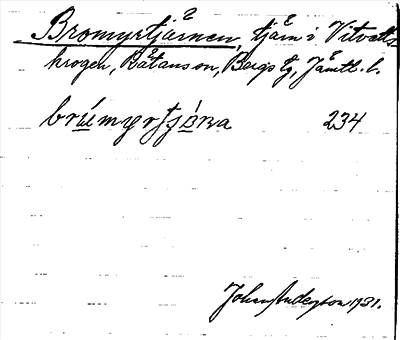 Bromyrtjärnen, tjärn i Vitvatts-
krogen, Råtans sn, Bergs tg, Jämtl. l.
brúmyrtjär̀na 234
John Anderson 1931.